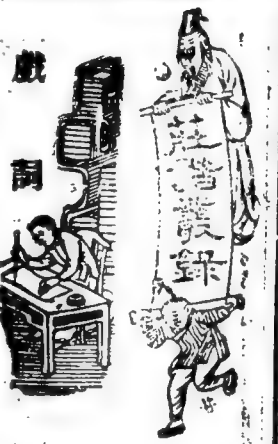 莊諧叢錄
戲詞